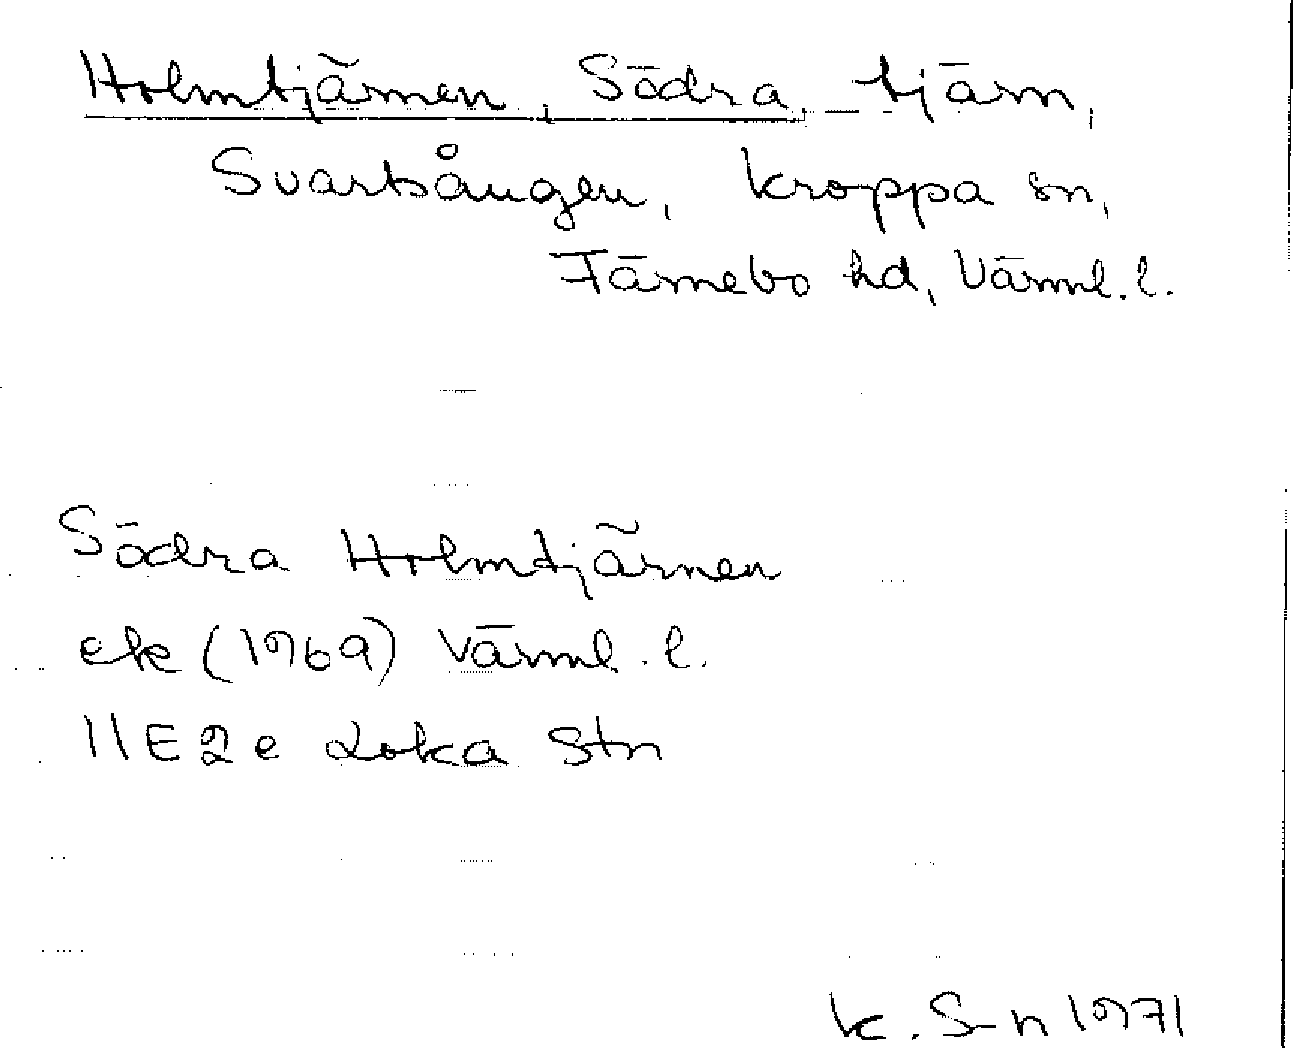 Holmtjärnen, Södra, tjärn,
Svartsången, Kroppa sn,
Färnebo hd, Värml. l.
Södra Holmtjärnen
ek (1969) Värml. l.
11E2e Loka Stn
K. S-n 1971